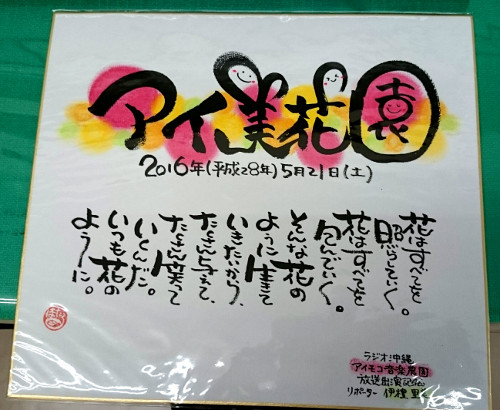 アイ美花園
2016年(平成28年)5月21日(土)
花はすべてを
照らしていく。
花はすべてを
包んでいく。
そんな花の
ように生きて
いきたいから、
たくさん与えて、
たくさん笑って
いくんだ。
いつも花の
ように。
ラジオ沖縄
アイモコ音楽農園
放送出演記念
リポーター 伊禮